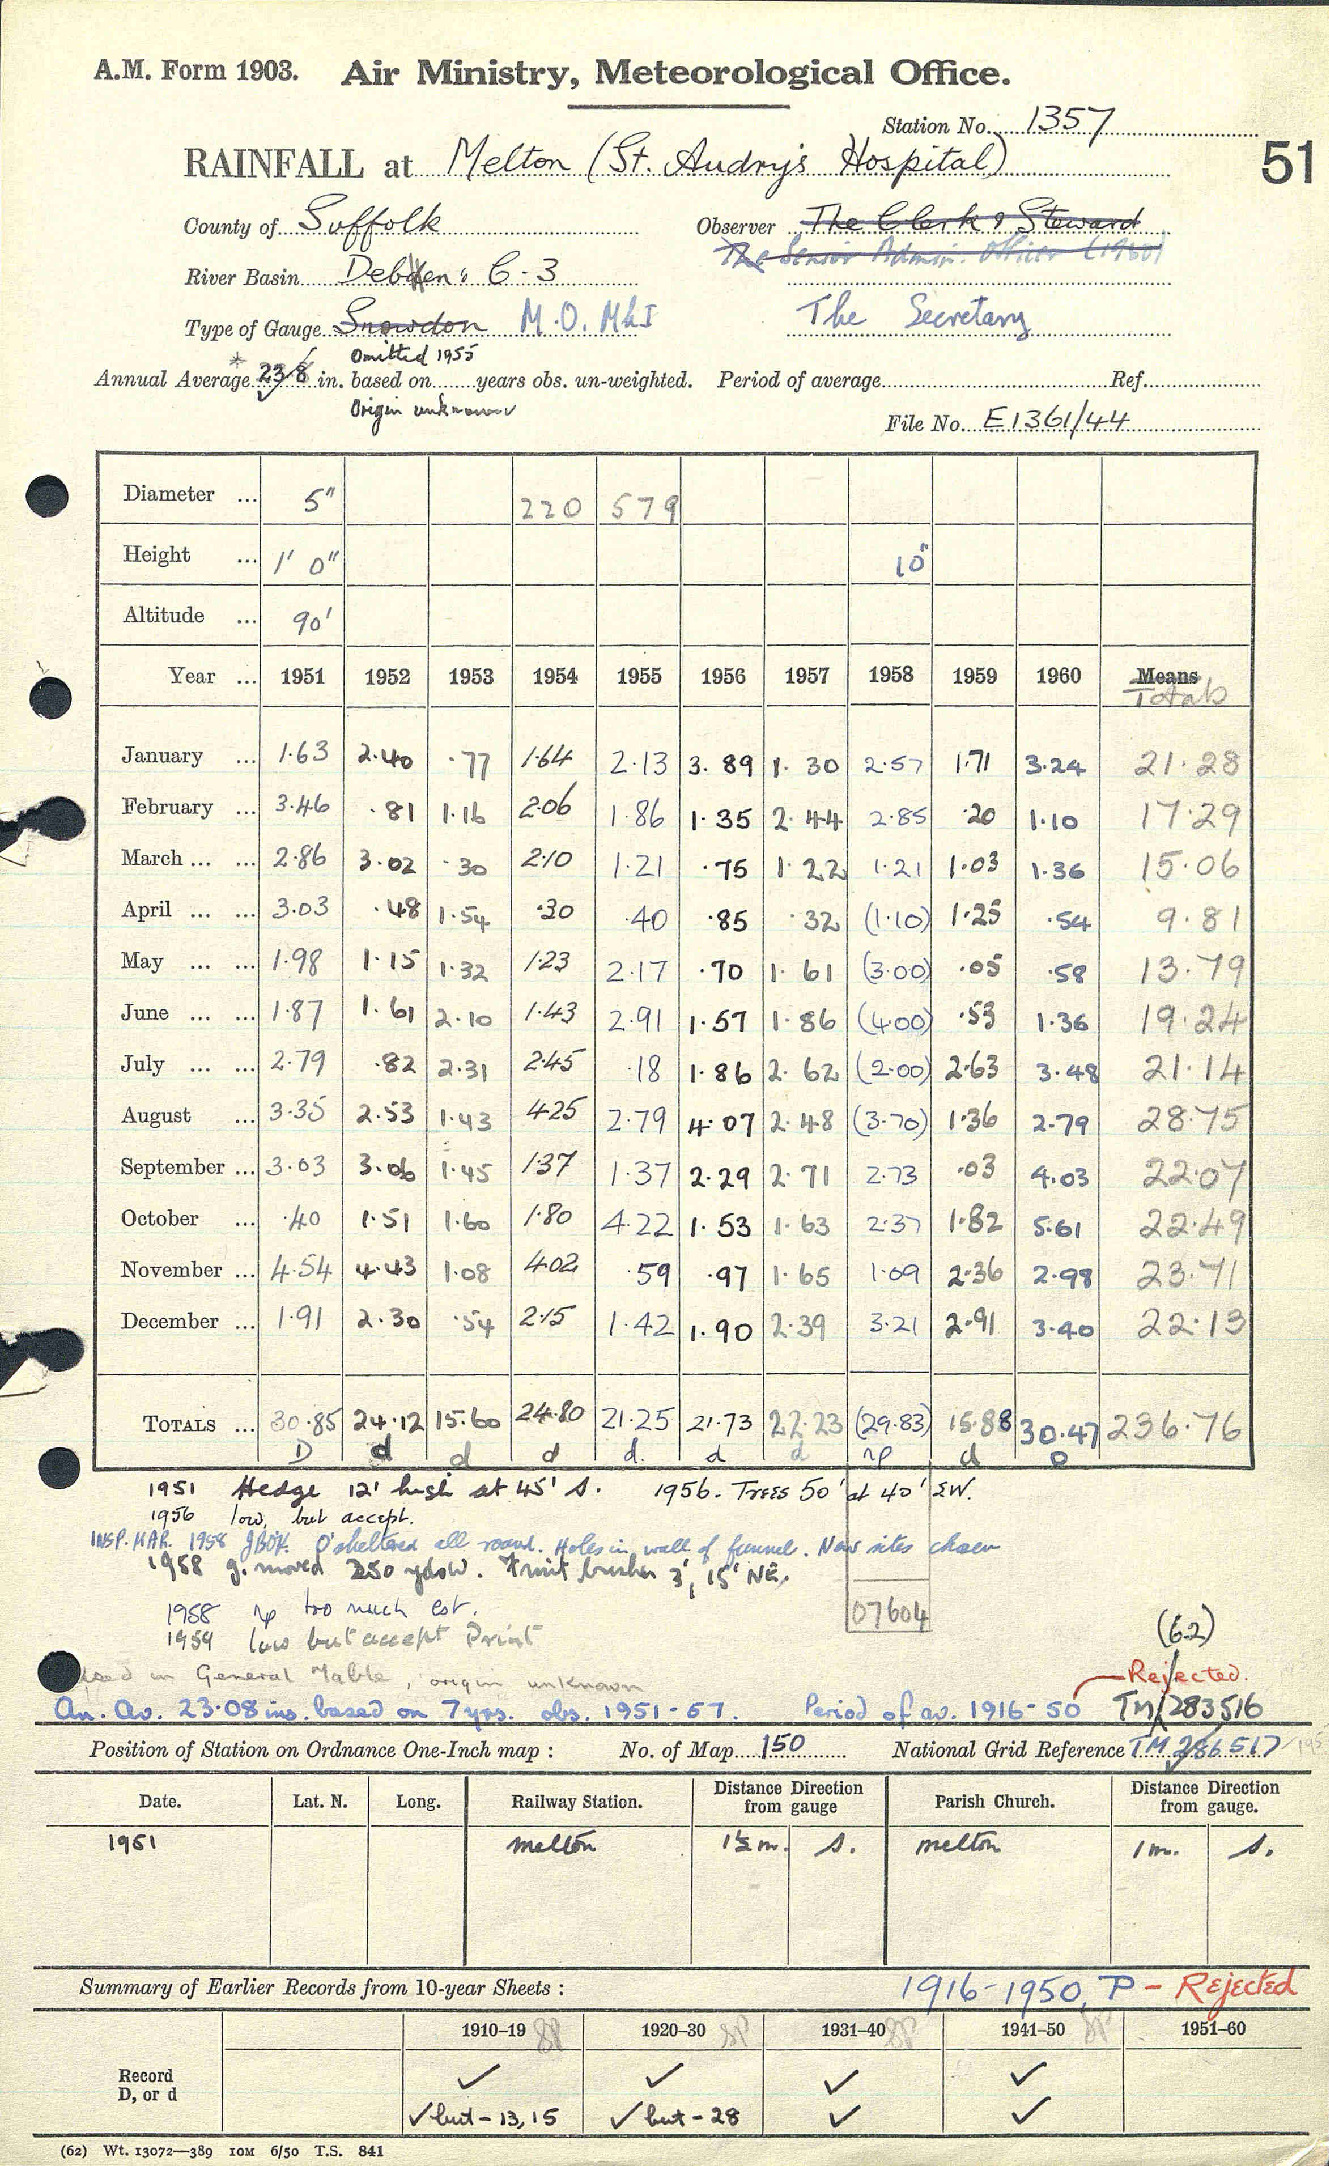 A.M. Form 1903. Air Ministry, Meteorological Office.
Station No. 1357
51
RAINFALL at Melton (St. Audry's Hospital)
County of Suffolk Observer The Clerk & Steward
The Senior Admin. Officer (1960)
River Basin Deben: 6-3
Type of Gauge Snowdon M.O. MkI The Secretary
Omitted 1955
* Annual Average 23.8 in. based on years obs. un-weighted. Period of average Ref.
Origin unknown
File No. E1361/44
Diameter ... 5" 220 579
Height ... 1' 0" 10"
Altitude ... 90'
Year ... 1951 1952 1953 1954 1955 1956 1957 1958 1959 1960 Means
Totals
January ... 1.63 2.40 .77 1.64 2.13 3.89 1.30 2.57 1.71 3.24 21.28
February ... 3.46 .81 1.16 2.06 1.86 1.35 2.44 2.85 .20 1.10 17.29
March ... ... 2.86 3.02 .30 2.10 1.21 .75 1.22 1.21 1.03 1.36 15.06
April ... ... 3.03 .48 1.54 .30 .40 .85 .32 (1.10) 1.25 .54 9.81
May ... ... 1.98 1.15 1.32 1.23 2.17 .70 1.61 (3.00) .05 .58 13.79
June ... ... 1.87 1.61 2.10 1.43 2.91 1.57 1.86 (4.00) .53 1.36 19.24
July ... ... 2.79 .82 2.31 2.45 .18 1.86 2.62 (2.00) 2.63 3.48 21.14
August ... 3.35 2.53 1.43 4.25 2.79 4.07 2.48 (3.70) 1.36 2.79 28.75
September ... 3.03 3.06 1.45 1.37 1.37 2.29 2.71 2.73 .03 4.03 22.07
October ... .40 1.51 1.60 1.80 4.22 1.53 1.63 2.37 1.82 5.61 22.49
November ... 4.54 4.43 1.08 4.02 .59 .97 1.65 1.09 2.36 2.98 23.71
December ... 1.91 2.30 .54 2.15 1.42 1.90 2.39 3.21 2.91 3.40 22.13
TOTALS ... 30.85 24.12 15.60 24.80 21.25 21.73 22.23 (29.83) 15.88 30.47 236.76
D d d d d. d d np d D
1951 Hedge 12' high at 45' S. 1956. Trees 50' at 40' SW.
1956 low, but accept.
INSP. MAR. 1958 O'sheltered all round. Holes in wall of funnel. New sites chosen
1958 g. moved 250 yds W. Fruit bushes 3', 15' NE.
1958 np too much est.
07604
1959 low but accept Print
(62)
used in General Table, origin unknown
Rejected.
An. Av. 23.08 ins. based on 7 yrs. obs. 1951-57. Period of av. 1916-50 TM 283516
Position of Station on Ordnance One-Inch map : No. of Map 150 National Grid Reference TM 286517
Date. Lat. N. Long. Railway Station. Distance Direction from gauge Parish Church. Distance Direction from gauge.
1951 Melton 1½ m. S. Melton 1 m. S.
Summary of Earlier Records from 10-year Sheets : 1916-1950, P - Rejected
1910–19 1920–30 1931–40 1941–50 1951–60
Record D, or d ✓ ✓ ✓ ✓
✓ but - 13, 15 ✓ but - 28 ✓ ✓
(62) Wt. 13072—389 10M 6/50 T.S. 841